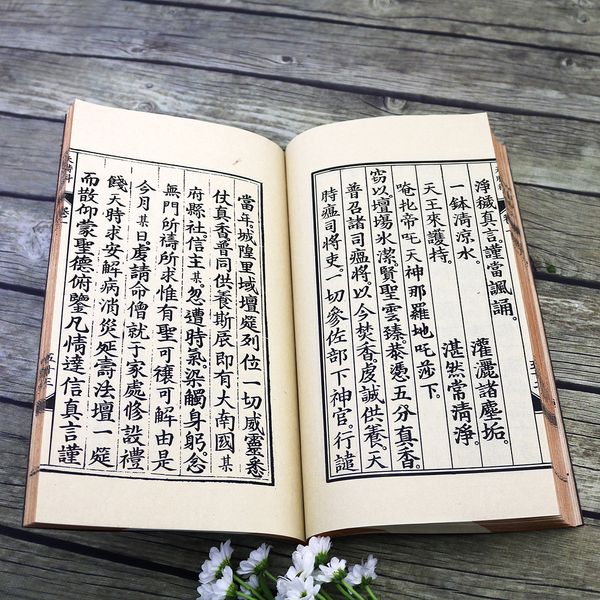 淨穢真言。謹當諷誦。
一鉢清涼水。 灌灑諸塵垢。
天王來護持。 湛然常清淨。
唵扎帝吒天神那羅地吒莎下。
窃以壇場水潔。賢聖雲臻。恭憑五分真香。
普召諸司瘟將。以今焚香。虔誠供養。天
時瘟司將吏。一切參佐部下神官。行譴
當年城隍里域壇筵列位一切威靈悉
仗真香普同供養斯辰即有大南國某
府縣社信主某忽遭時氣。染觸身躬。念
無門所禱所求惟有聖可禳可解由是
今月某日。虔請命僧就于家處修設禮
餞天時求安解病消災延壽法壇一筵
而散仰蒙聖德俯鑒凡情達信真言謹